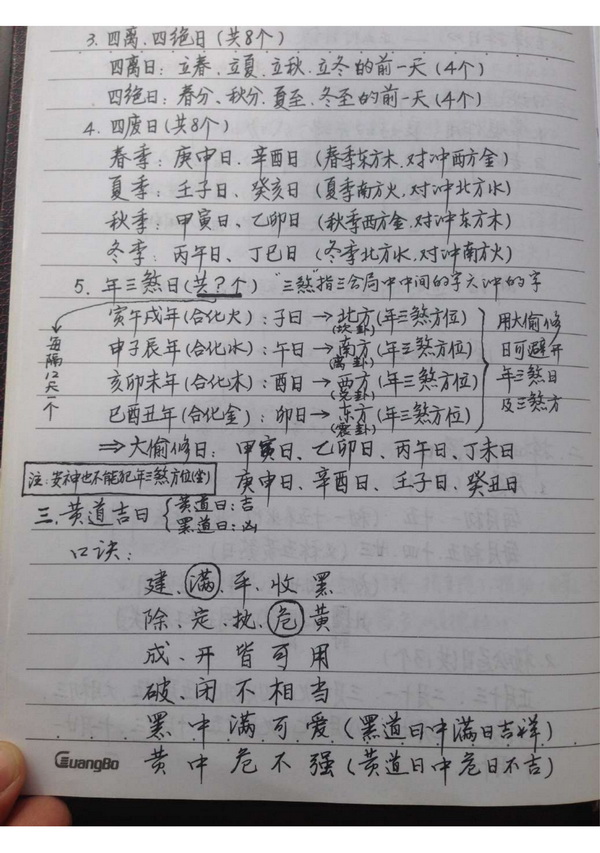 3. 四离、四绝日（共8个）
四离日：立春、立夏、立秋、立冬的前一天（4个）
四绝日：春分、秋分、夏至、冬至的前一天（4个）
4. 四废日（共8个）
春季：庚申日、辛酉日（春季东方木，对冲西方金）
夏季：壬子日、癸亥日（夏季南方火，对冲北方水）
秋季：甲寅日、乙卯日（秋季西方金，对冲东方木）
冬季：丙午日、丁巳日（冬季北方水，对冲南方火）
5. 年三煞日（共？个）"三煞"指三合局中中间的字六冲的字
每隔12天一个
寅午戌年（合化火）：子日→北方（年三煞方位）
（坎卦）
申子辰年（合化水）：午日→南方（年三煞方位）
（离卦）
亥卯未年（合化木）：酉日→西方（年三煞方位）
（兑卦）
巳酉丑年（合化金）：卯日→东方（年三煞方位）
（震卦）
用大偷修
日可避开
年三煞日
及三煞方
⇒大偷修日：甲寅日、乙卯日、丙午日、丁未日
庚申日、辛酉日、壬子日、癸丑日
注：安神也不能犯年三煞方位（坐）
三、黄道吉日
黄道日：吉
黑道日：凶
口诀：
建、满、平、收黑
除、定、执、危黄
成、开皆可用
破、闭不相当
黑中满可爱（黑道日中满日吉祥）
黄中危不强（黄道日中危日不吉）
GuangBo